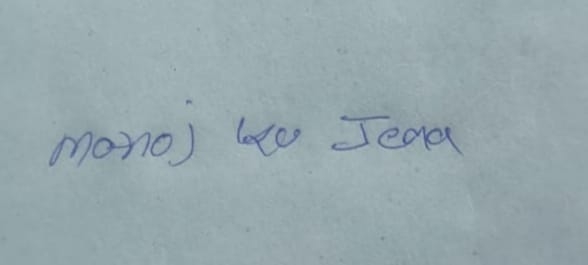 manoj ku Jena